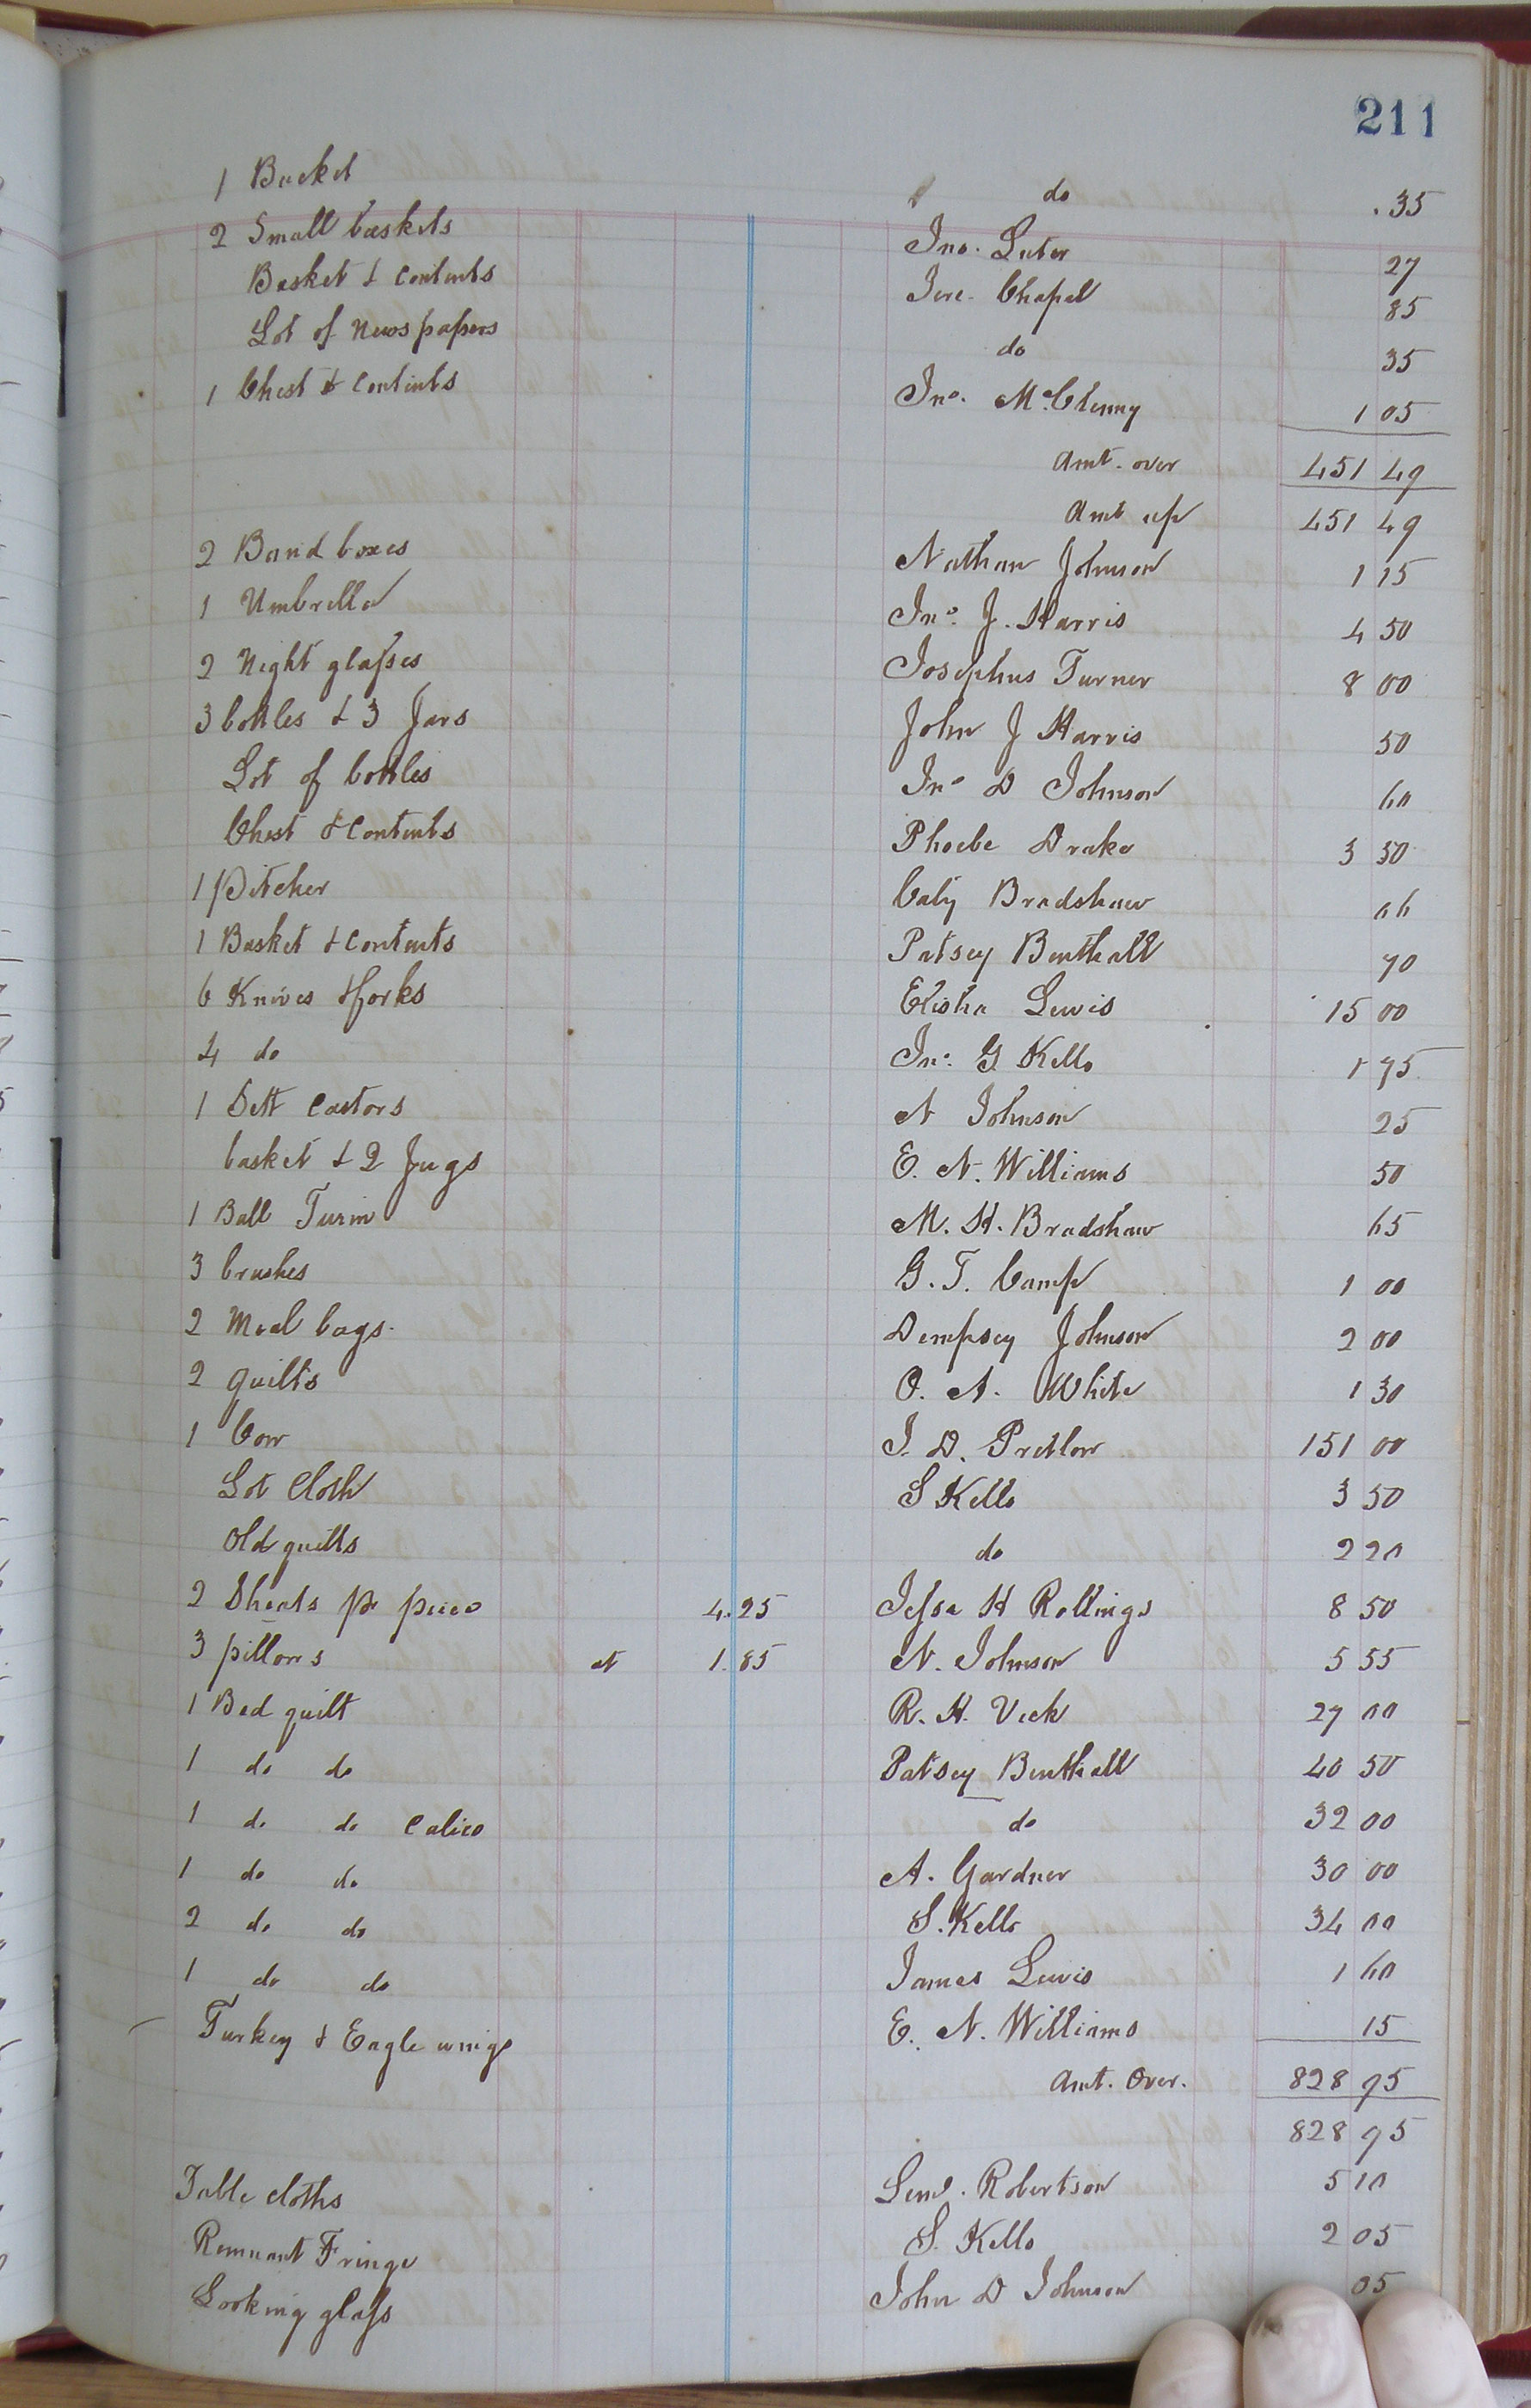 211
1 Bucket do .35
2 Small baskets Jno. Luter 27
Basket & Contents Jere. Chapel 85
Lot of News papers do 35
1 Chest & Contents Jno. McClenny 1 05
Amt. over 451 49
Amt up 451 49
2 Band boxes Nathan Johnson 1 15
1 Umbrella Jno. J. Harris 4 50
2 Night glasses Josephus Turner 8 00
3 bottles & 3 Jars John J Harris 50
Lot of bottles Jno D Johnson 60
Chest & Contents Phoebe Drake 3 50
1 Pitcher Caty Bradshaw 06
1 Basket & Contents Patsey Benthall 70
6 Knives & forks Elisha Lewis 15 00
4 do Jno. G Kello 1 75
1 Sett Castors N Johnson 25
basket & 2 Jugs E. N. Williams 50
1 Ball Turin M. H. Bradshaw 65
3 brushes G. T. Camp 1 00
2 Meal bags. Dempsey Johnson 2 00
2 quilts O. A. White 1 30
1 Cow J. D. Pretlow 151 00
Lot Cloth S Kello 3 50
Old quilts do 2 20
2 Sheats pr piece 4.25 Jesse H Rollings 8 50
3 pillows at 1.85 N. Johnson 5 55
1 Bed quilt R. H. Vick 27 00
1 do do Patsey Benthall 40 50
1 do do Calico do 32 00
1 do do A. Gardner 30 00
2 do do S. Kello 34 00
1 do do James Lewis 1 60
Turkey & Eagle wings E. N. Williams 15
Amt. Over. 828 95
828 95
Table cloths Leml. Robertson 5 10
Remnant Fringe S. Kello 2 05
Looking glass John D Johnson 05